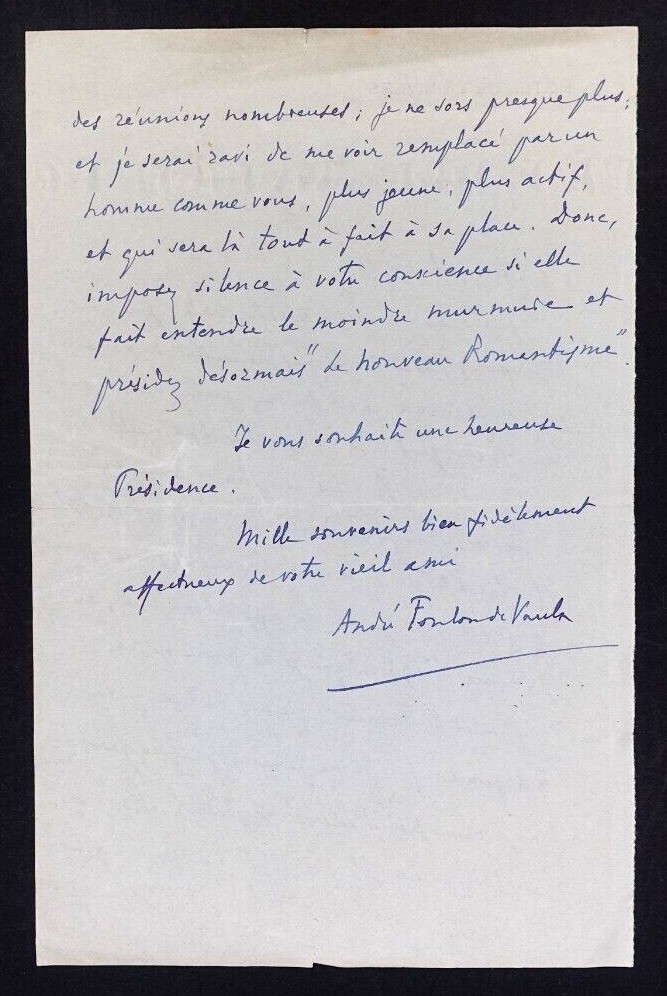 des réunions nombreuses ; je ne sors presque plus ;
et je serai ravi de me voir remplacé par un
homme comme vous, plus jeune, plus actif,
et qui sera là tout à fait à sa place. Donc,
imposez silence à votre conscience si elle
fait entendre le moindre murmure et
présidez désormais "Le nouveau Romantisme"
Je vous souhaite une heureuse
Présidence.
Mille souvenirs bien fidèlement
affectueux de votre vieil ami
André Foulon de Vaulx